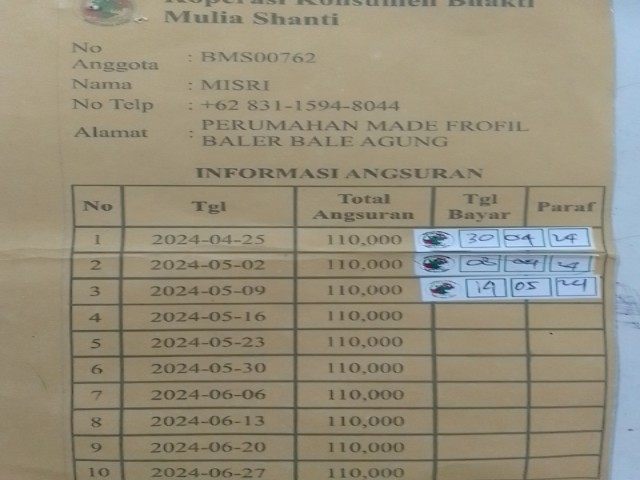 Koperasi Konsumen Bhakti
Mulia Shanti
No Anggota : BMS00762
Nama : MISRI
No Telp : +62 831-1594-8044
Alamat : PERUMAHAN MADE FROFIL
BALER BALE AGUNG
INFORMASI ANGSURAN
No Tgl Total Angsuran Tgl Bayar Paraf
1 2024-04-25 110,000 30 04 24
2 2024-05-02 110,000 24
3 2024-05-09 110,000 14 05 24
4 2024-05-16 110,000
5 2024-05-23 110,000
6 2024-05-30 110,000
7 2024-06-06 110,000
8 2024-06-13 110,000
9 2024-06-20 110,000
10 2024-06-27 110,000